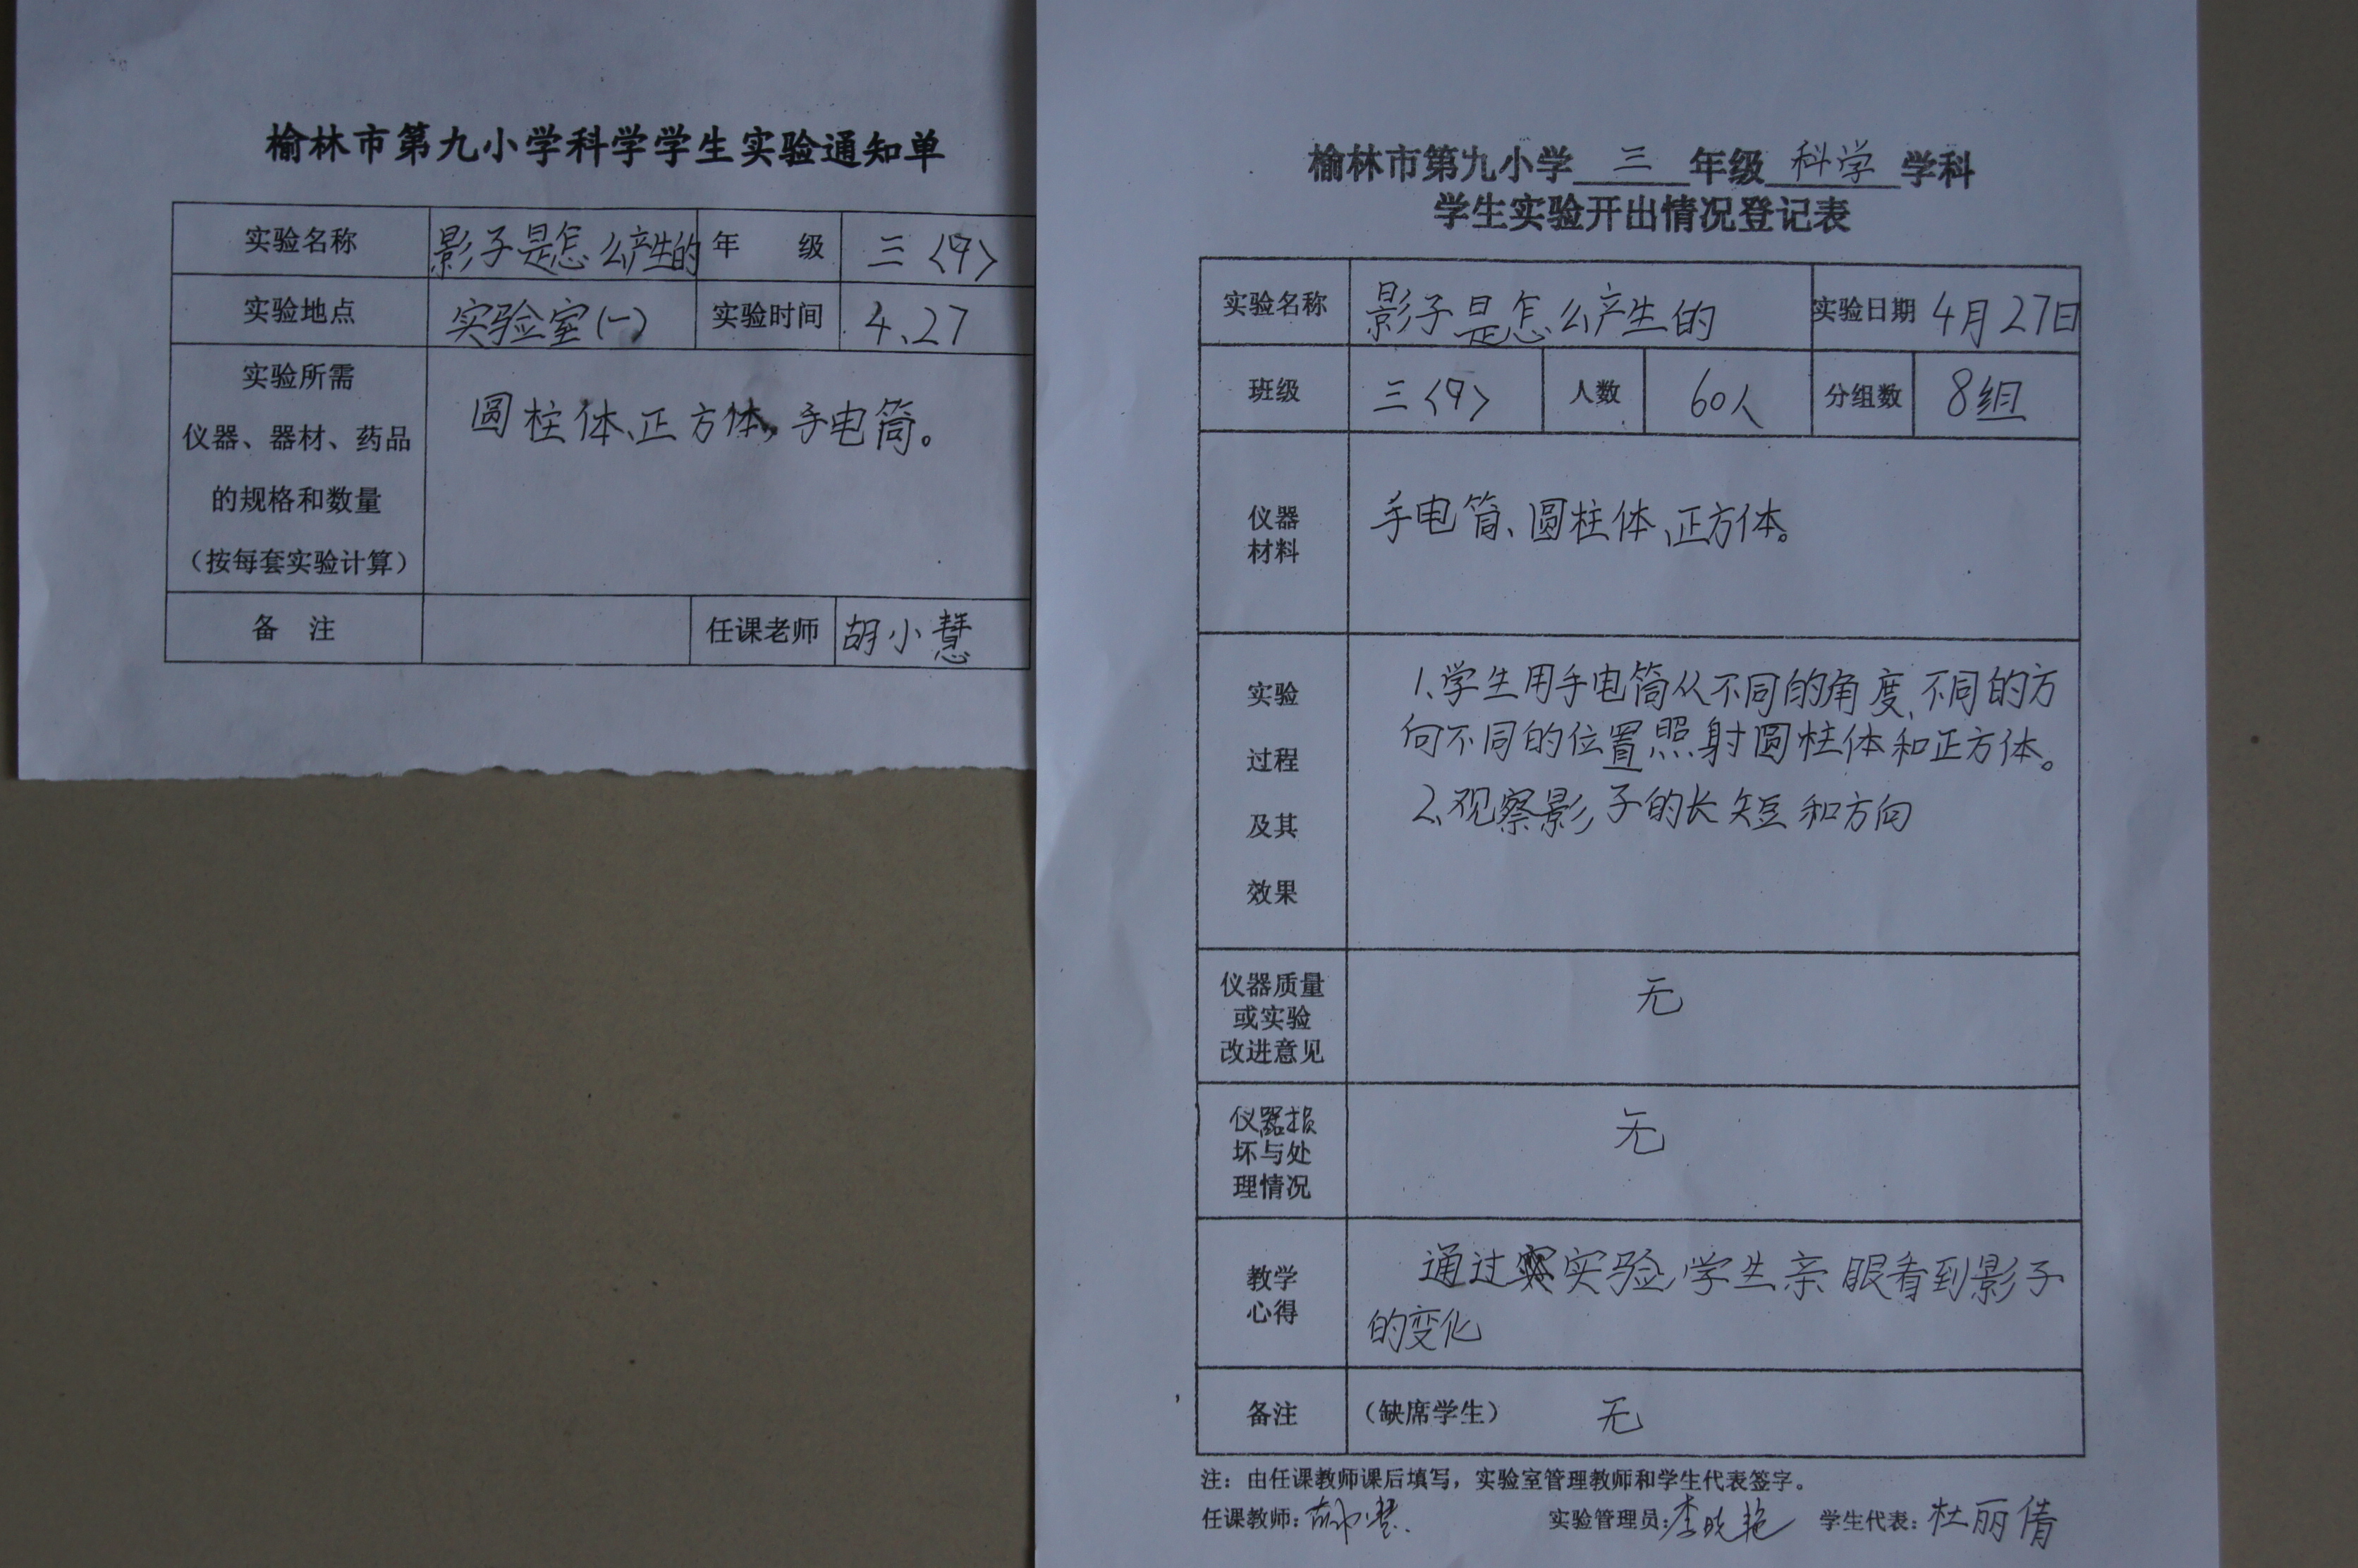 榆林市第九小学科学学生实验通知单
实验名称 影子是怎么产生的 年 级 三〈9〉
实验地点 实验室(一) 实验时间 4、27
实验所需
仪器、器材、药品
的规格和数量
（按每套实验计算）
圆柱体、正方体，手电筒。
备 注 任课老师 胡小慧
榆林市第九小学 三 年级 科学 学科
学生实验开出情况登记表
实验名称 影子是怎么产生的 实验日期 4月27日
班级 三〈9〉 人数 60人 分组数 8组
仪器
材料
手电筒、圆柱体、正方体。
实验
过程
及其
效果
1、学生用手电筒从不同的角度、不同的方
向不同的位置照射圆柱体和正方体。
2、观察影子的长短和方向
仪器质量
或实验
改进意见
无
仪器损
坏与处
理情况
无
教学
心得
通过实验，学生亲眼看到影子
的变化
备注 （缺席学生） 无
注：由任课教师课后填写，实验室管理教师和学生代表签字。
任课教师：胡小慧 实验管理员：李晓艳 学生代表：杜丽倩